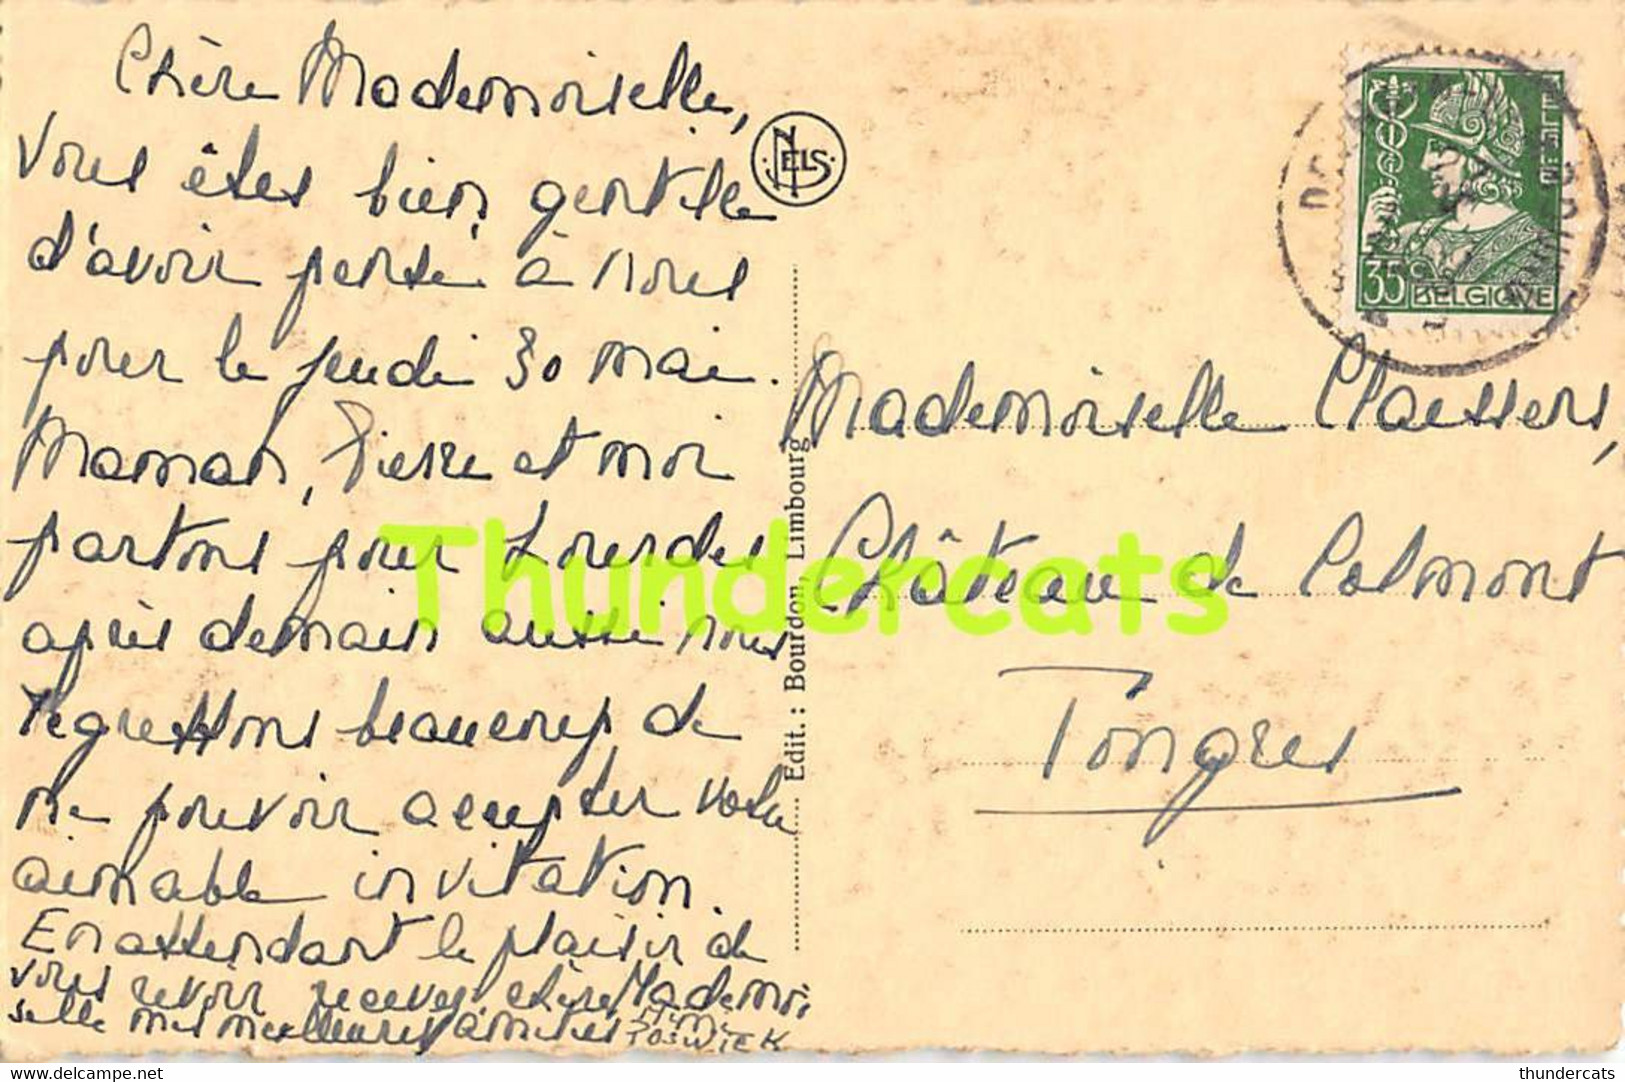 Chère Mademoiselle,
Vous êtes bien gentille
d'avoir pensé à nous
pour le jeudi 30 mai.
Maman, Pierre et moi
partons pour Lourdes
après demain aussi nous
regrettons beaucoup de
ne pouvoir accepter votre
aimable invitation.
En attendant le plaisir de
vous revoir recevez chère Mademoi
selle mes meilleures amitiés
POSWICK
NELS
Edit.: Bourdon, Limbourg
35c BELGIQUE
BELGIE
Mademoiselle Claessens,
Château de Colmont
Tongres
Thundercats
delcampe.net
thundercats